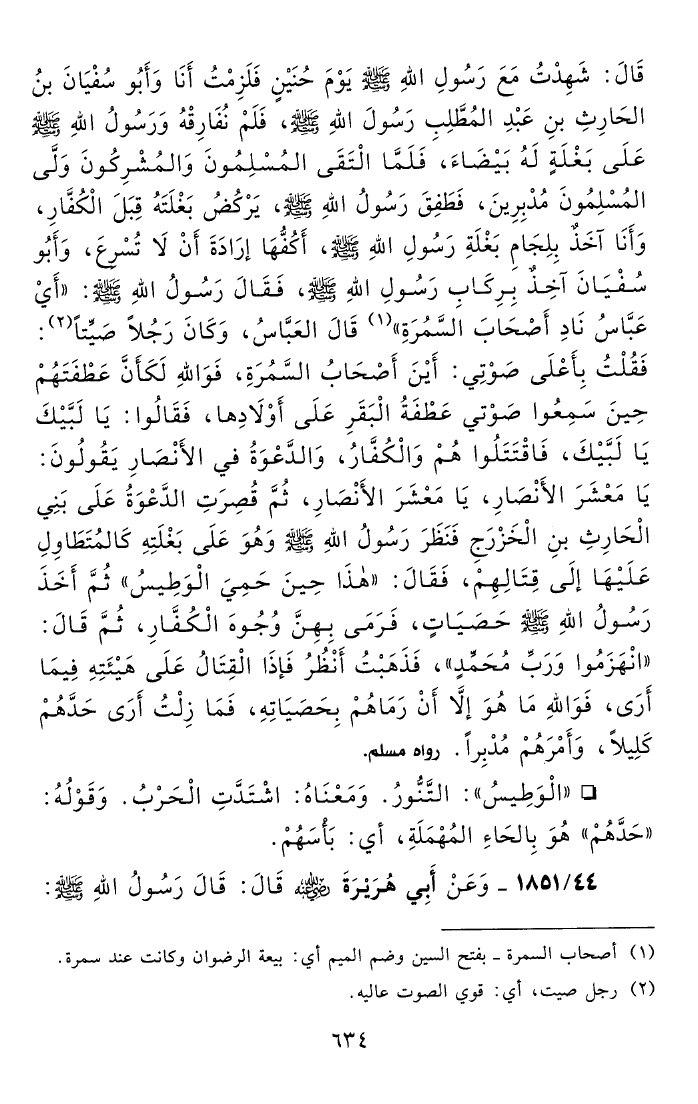 قَالَ: شَهِدْتُ مَعَ رَسُولِ اللهِ ﷺ يَوْمَ حُنَيْنٍ فَلَزِمْتُ أَنَا وَأَبُو سُفْيَانَ بنُ
الحَارِثِ بنِ عَبْدِ المُطَّلِبِ رَسُولَ اللهِ ﷺ، فَلَمْ نُفَارِقْهُ وَرَسُولُ اللهِ ﷺ
عَلَى بَغْلَةٍ لَهُ بَيْضَاءَ، فَلَمَّا الْتَقَى المُسْلِمُونَ وَالمُشْرِكُونَ وَلَّى
المُسْلِمُونَ مُدْبِرِينَ، فَطَفِقَ رَسُولُ اللهِ ﷺ، يَرْكُضُ بَغْلَتَهُ قِبَلَ الْكُفَّارِ،
وَأَنَا آخِذٌ بِلِجَامِ بَغْلَةِ رَسُولِ اللهِ ﷺ، أَكُفُّهَا إِرَادَةَ أَنْ لَا تُسْرِعَ، وَأَبُو
سُفْيَانَ آخِذٌ بِرِكَابِ رَسُولِ اللهِ ﷺ، فَقَالَ رَسُولُ اللهِ ﷺ: «أَيْ
عَبَّاسُ نَادِ أَصْحَابَ السَّمُرَةِ»(١) قَالَ العَبَّاسُ، وَكَانَ رَجُلاً صَيِّتاً(٢):
فَقُلْتُ بِأَعْلَى صَوْتِي: أَيْنَ أَصْحَابُ السَّمُرَةِ، فَوَاللهِ لَكَأَنَّ عَطْفَتَهُمْ
حِينَ سَمِعُوا صَوْتي عَطْفَةُ الْبَقَرِ عَلَى أَوْلَادِها، فَقَالُوا: يَا لَبَّيْكَ
يَا لَبَّيْكَ، فَاقْتَتَلُوا هُمْ وَالْكُفَّارُ، وَالدَّعْوَةُ في الأَنْصَارِ يَقُولُونَ:
يَا مَعْشَرَ الأَنْصَارِ، يَا مَعْشَرَ الأَنْصَارِ، ثُمَّ قُصِرَتِ الدَّعْوَةُ عَلَى بَنِي
الْحَارِثِ بنِ الْخَزْرَجِ فَنَظَرَ رَسُولُ اللهِ ﷺ وَهُوَ عَلَى بَغْلَتِهِ كَالمُتَطَاوِلِ
عَلَيْهَا إلَى قِتَالِهِمْ، فَقَالَ: «هٰذَا حِينَ حَمِيَ الْوَطِيسُ» ثُمَّ أَخَذَ
رَسُولُ اللهِ ﷺ حَصَيَاتٍ، فَرَمَى بِهِنَّ وُجُوهَ الْكُفَّارِ، ثُمَّ قَالَ:
«انْهَزَمُوا وَرَبِّ مُحَمَّدٍ»، فَذَهَبْتُ أَنْظُرُ فَإِذَا الْقِتَالُ عَلَى هَيْئَتِهِ فِيمَا
أَرَى، فَوَاللهِ مَا هُوَ إِلَّا أَنْ رَمَاهُمْ بِحَصَيَاتِهِ، فَمَا زِلْتُ أَرَى حَدَّهُمْ
كَلِيلاً، وَأَمْرَهُمْ مُدْبِراً. رواه مسلم.
❑ «الْوَطِيسُ»: التَّنُّورُ. وَمَعْنَاهُ: اشْتَدَّتِ الْحَرْبُ. وَقَوْلُهُ:
«حَدَّهُمْ» هُوَ بِالحَاءِ المُهْمَلَةِ، أي: بَأْسَهُمْ.
١٨٥١/٤٤ ـ وَعَنْ أَبِي هُرَيْرَةَ رضي الله عنه قَالَ: قَالَ رَسُولُ اللهِ ﷺ:
(١) أصحاب السمرة ـ بفتح السين وضم الميم أي: بيعة الرضوان وكانت عند سمرة.
(٢) رجل صيت، أي: قوي الصوت عاليه.
٦٣٤